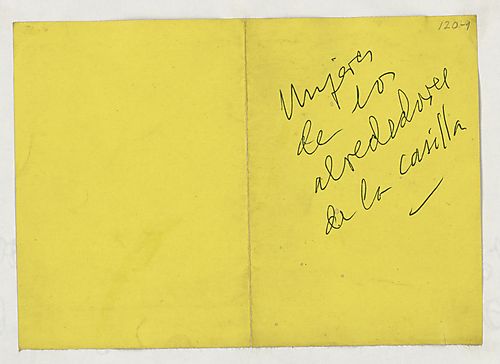 120-1
Mujeres
de los
alrededores
de la casilla